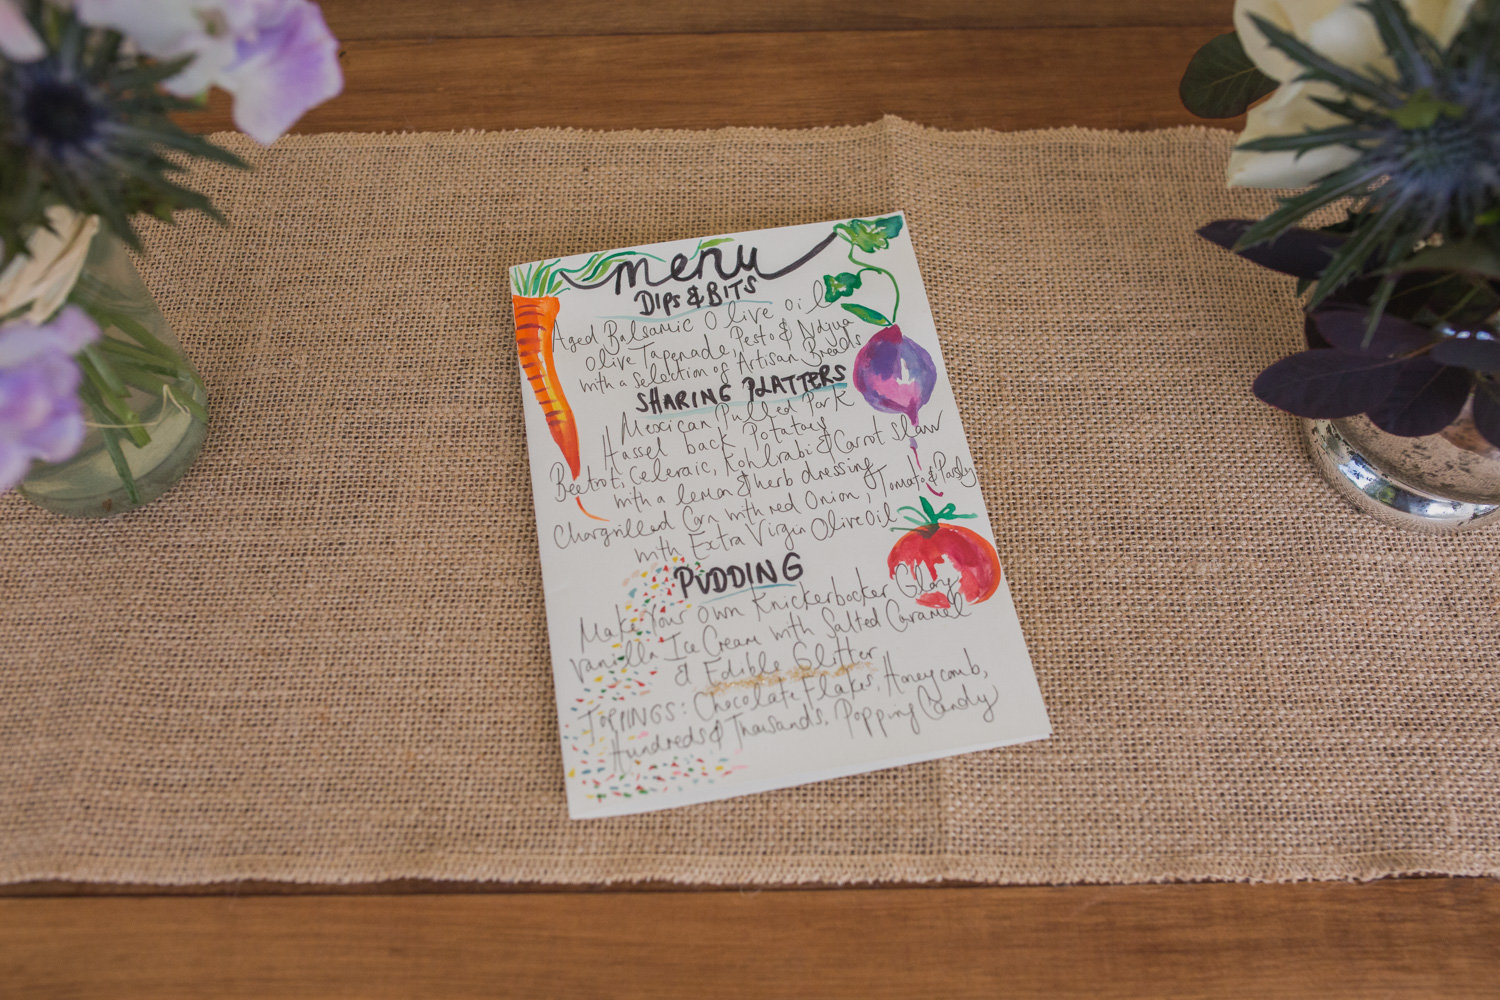 menu
DIPS & BITS
Aged Balsamic Olive oil
Olive Tapenade, Pesto & Nduja
with a selection of Artisan Breads
SHARING PLATTERS
Mexican Pulled Pork
Hassel back Potatoes
Beetrot, Celeraic, Kohlrabi & Carrot Slaw
with a lemon & herb dressing
Chargrilled Corn with red Onion, Tomato & Parsly
with Extra Virgin Olive Oil
PUDDING
Make Your Own Knickerbocker Glory
Vanilla Ice Cream with Salted Caramel
& Edible Glitter
TOPPINGS: Chocolate Flakes, Honeycomb,
Hundreds & Thousands, Popping Candy